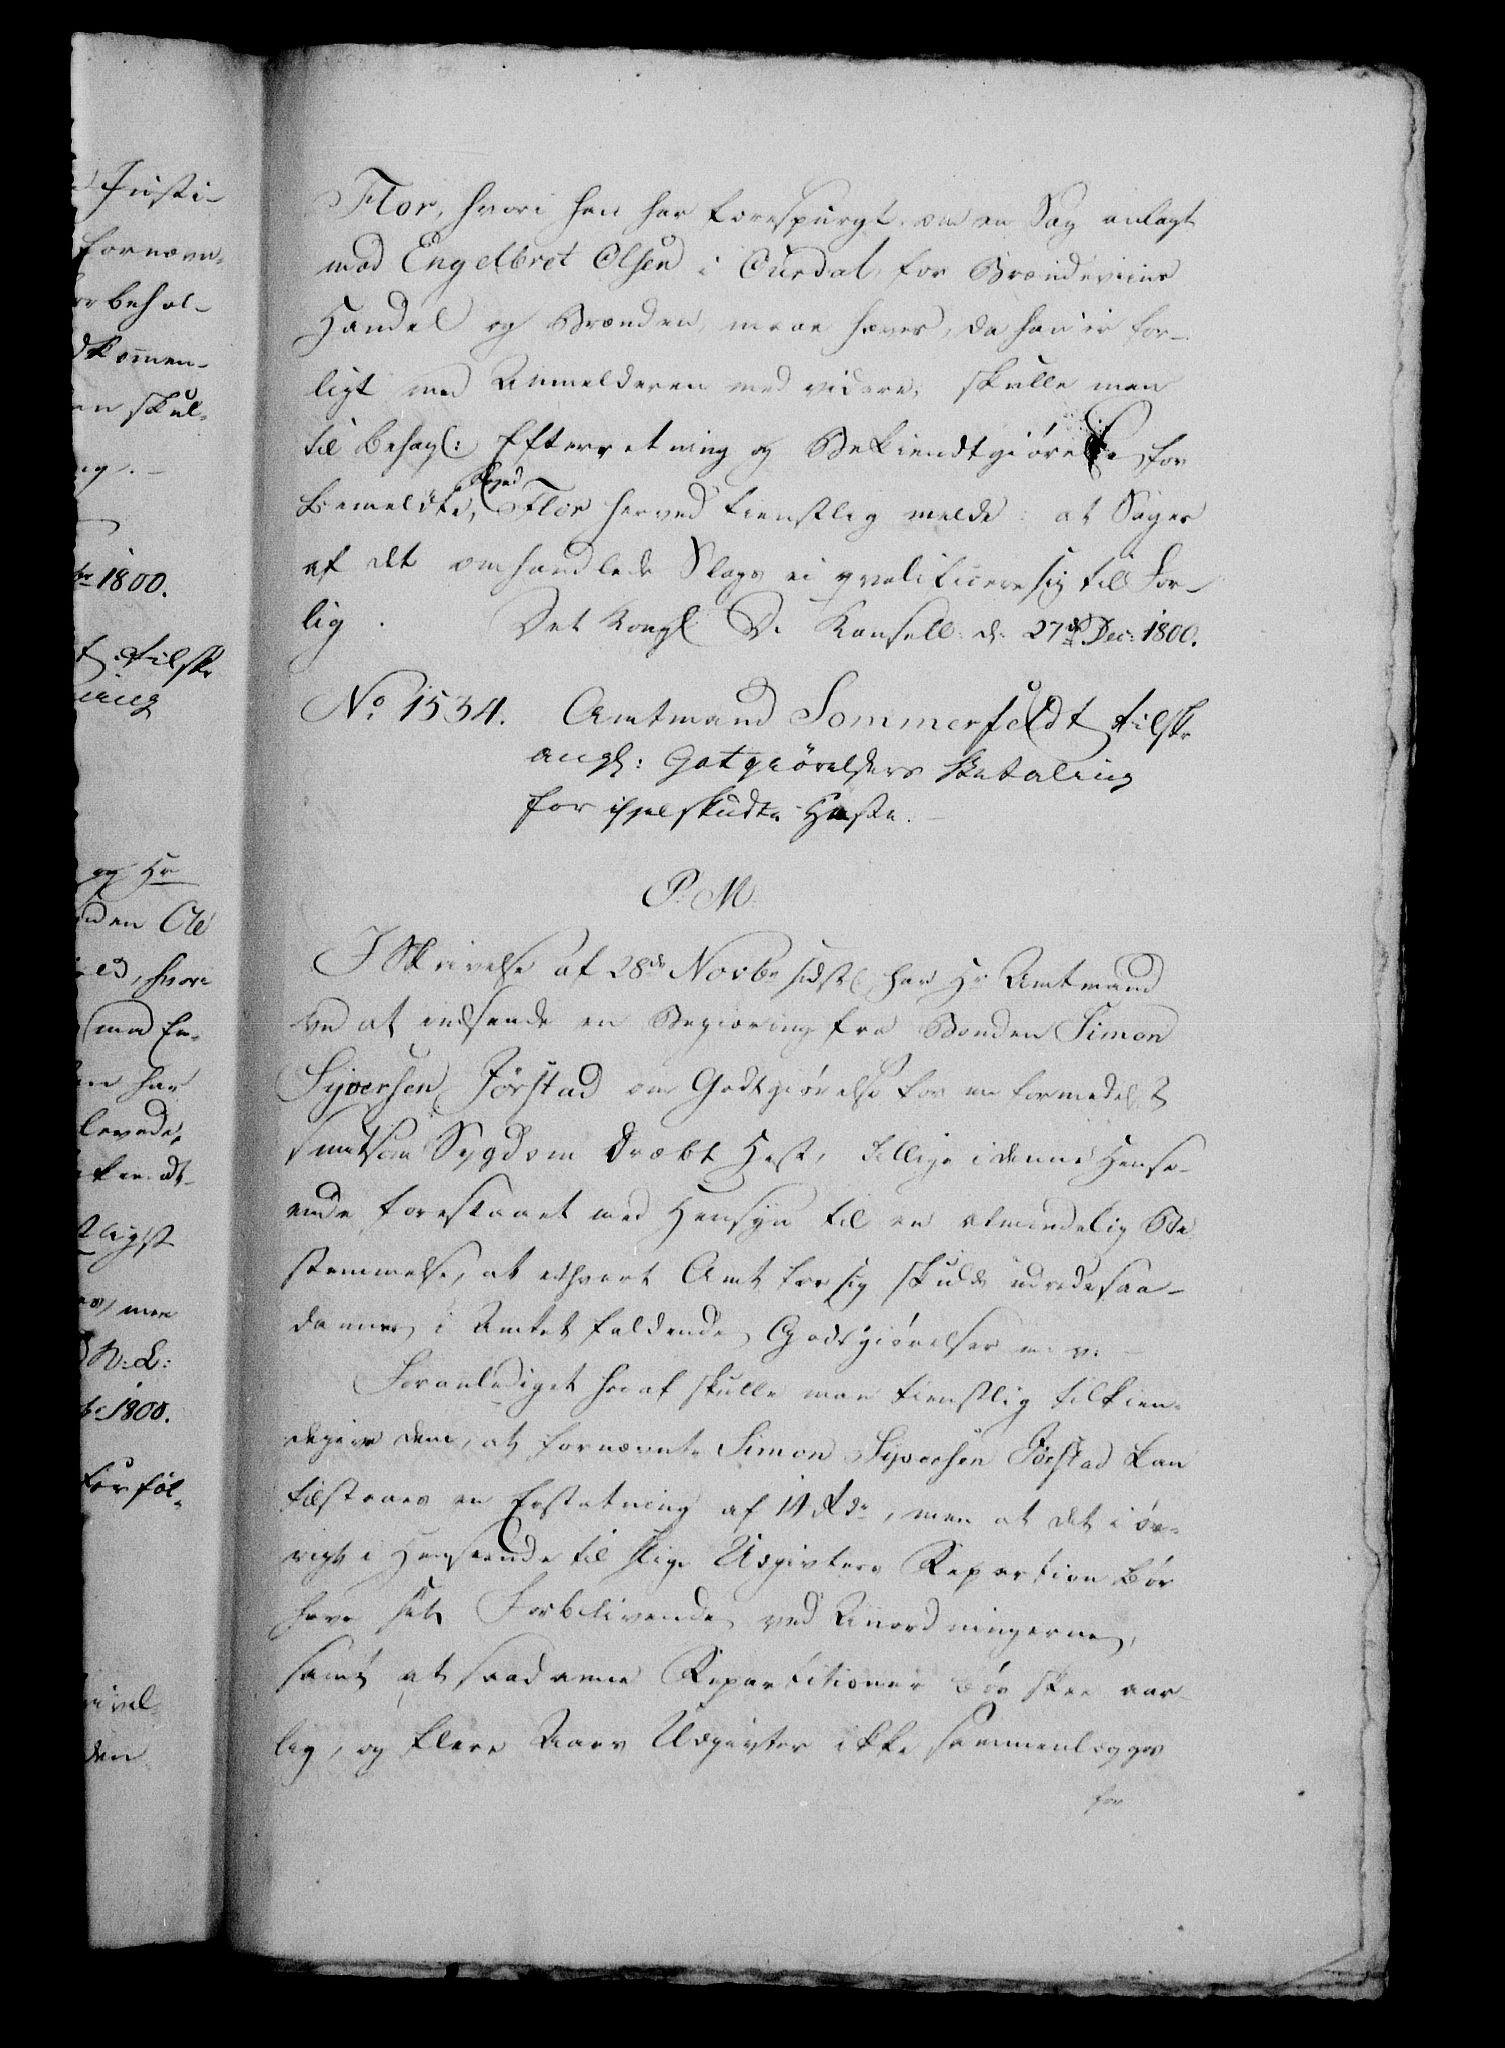 Flor, hvori han har forespurgt om en Sag anlagt
mod Engelbret Olsen i Ourdal, for Brændeviins
Handel og Brænden, maae hæves, da han er for-
ligt med Anmelderen med videre, skulle man
til behagl: Efterretning og Bekiendtgiørelse for
bemeldte Foged Flor herved tienstlig melde: at Sager
af det omhandlede Slags ei qvalificere sig til For-
lig. Det Kongl. D. Kancell: d: 27de Dec: 1800.
No 1534. Amtmand Sommerfeldt tilskr
angl: Godtgiørelsers Betaling
for ihjelskudte Heste.
P. M.
I Skrivelse af 28de Novbr sidstl. har Hr Amtmand
ved at indsende en Begiering fra Bonden Simon
Syversen Jørstad om Godtgiørelse for en formedelst
smitsom Sygdom dræbt Hest, tillige i denne Hense-
ende forestaaet med Hensyn til en almindelig Be-
stemmelse, at ethvert Amt for sig skulde udrede saa-
danne i Amtet faldende Godtgiørelser m. v.
Foranlediget heraf skulle man tienstlig tilkien-
degive dem, at fornævnte Simon Syversen Jørstad kan
tilstaaes en Erstatning af 14 Rdr, men at det i øv-
rigt i Henseende til slige Udgivters Repartion bør
have sit Forblivende ved Anordningerne,
samt at saadanne Repartitioner bør skee aar-
lig, og flere Aars Udgivter ikke sammenlægges
for
Justi-
fornævn-
behol-
dkommen-
en skul-
1800.
tilskr
og Hr
den Ole
hvori
med En-
har
levede,
ligst
men
1800.
for føl-
den